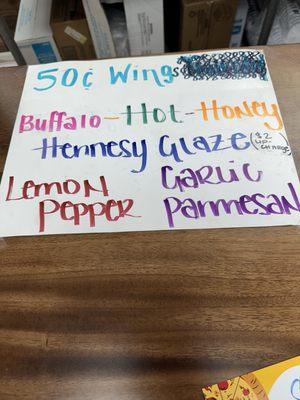 50¢ Wings
Buffalo-Hot-Honey
Hennesy Glaze ($2 up-charge)
Lemon Pepper
Garlic Parmesan